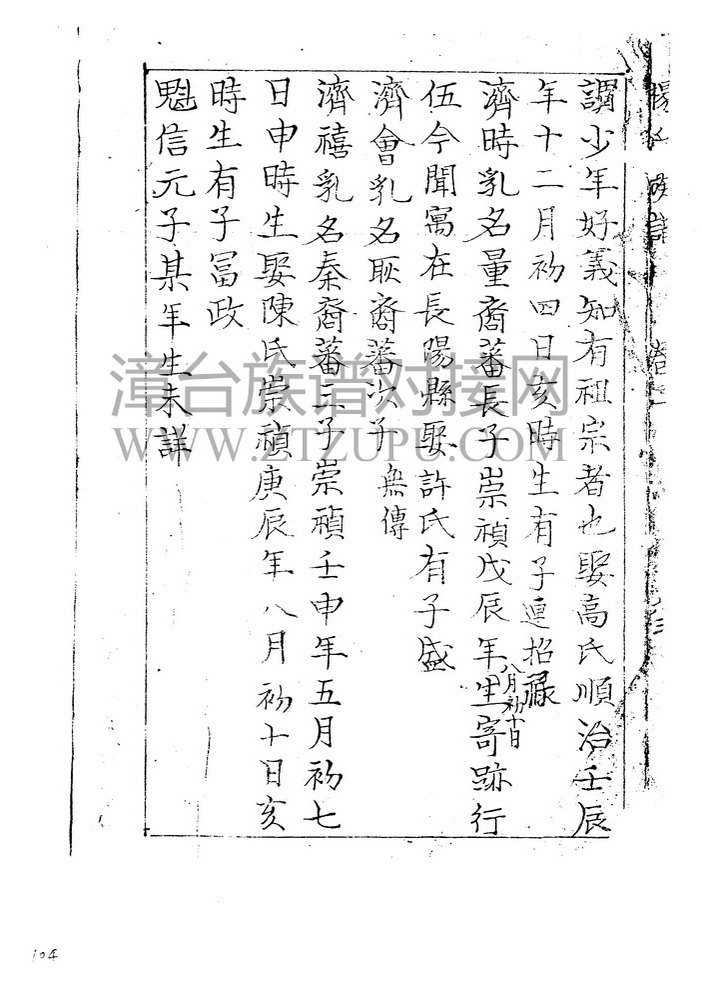 謂少年好義知有祖宗者也娶高氏順治壬辰
年十二月初四日亥時生有子連招祿
濟時乳名量裔蕃長子崇禎戊辰年八月初十日生寄跡行
伍今聞寓在長陽縣娶許氏有子盛
濟會乳名耿裔蕃次子無傳
濟禧乳名秦裔蕃三子崇禎壬申年五月初七
日申時生娶陳氏崇禎庚辰年八月初十日亥
時生有子冨政
魁信元子某年生未詳
漳台族谱对接网
WWW.ZTZUPU.COM
104